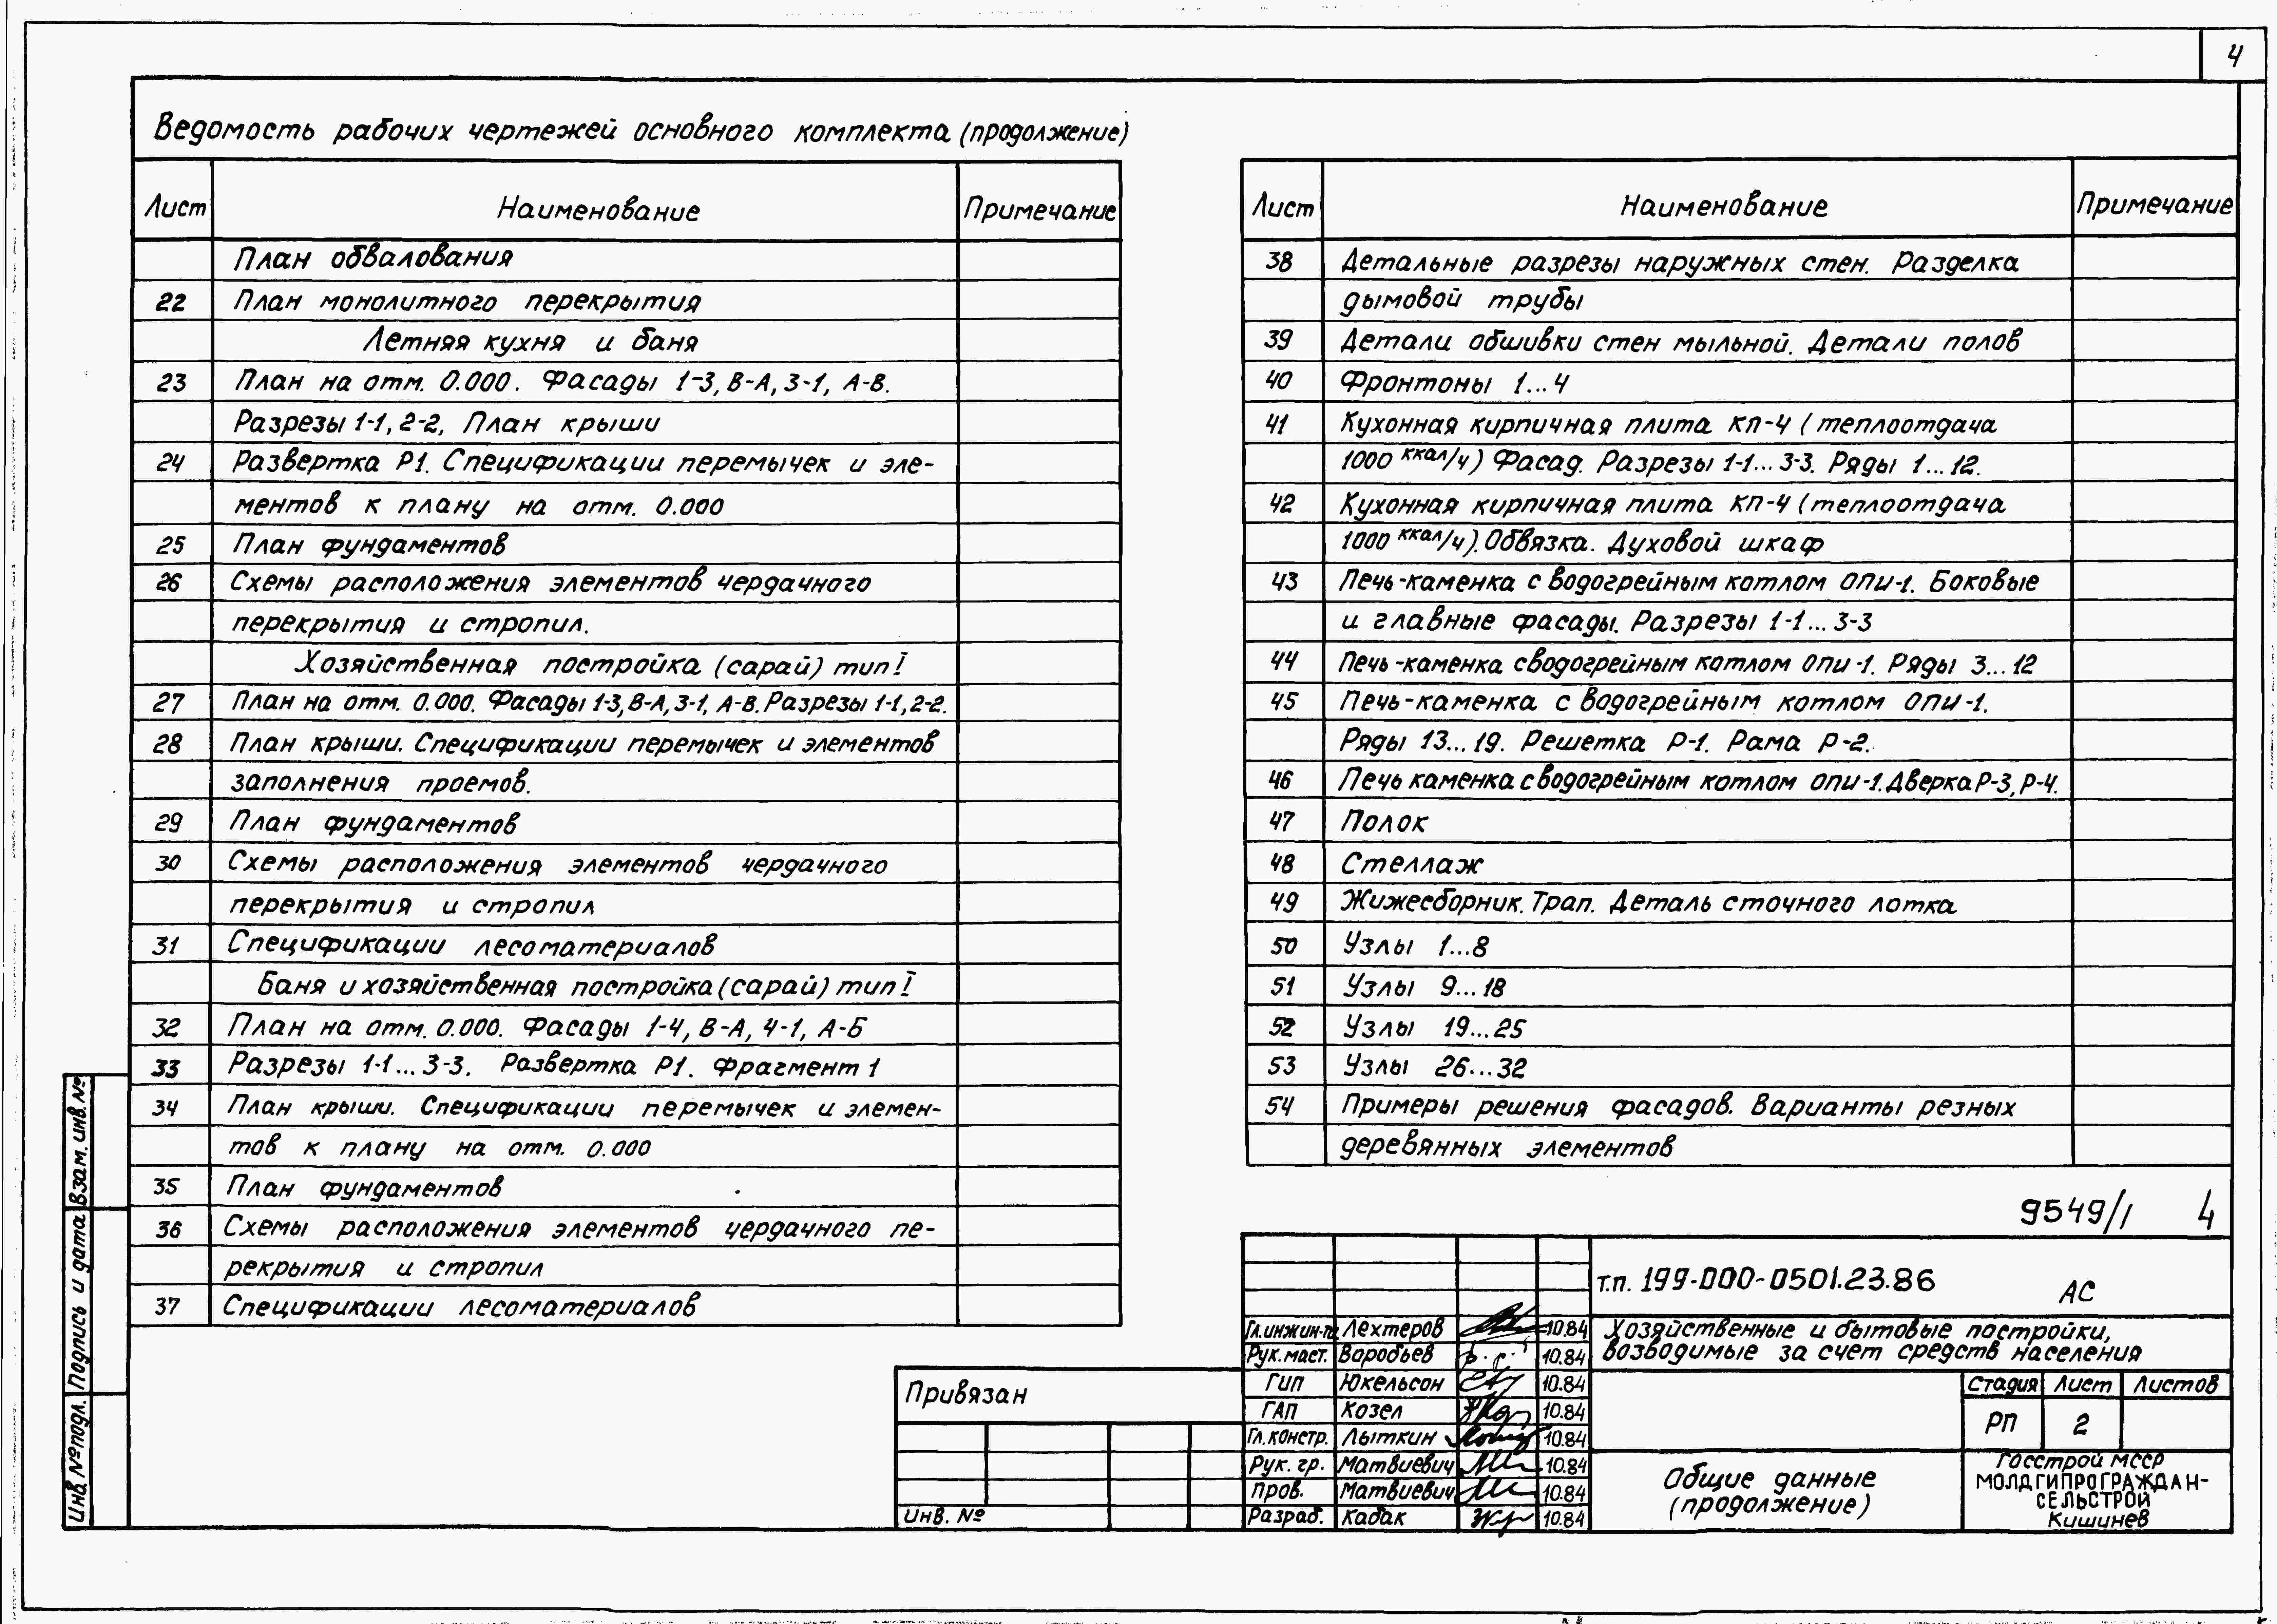 4
Ведомость рабочих чертежей основного комплекта (продолжение)
Лист Наименование Примечание
План обвалования
22 План монолитного перекрытия
Летняя кухня и баня
23 План на отм. 0.000. Фасады 1-3, В-А, 3-1, А-В.
Разрезы 1-1, 2-2, План крыши
24 Развертка Р1. Спецификации перемычек и эле-
ментов к плану на отм. 0.000
25 План фундаментов
26 Схемы расположения элементов чердачного
перекрытия и стропил.
Хозяйственная постройка (сарай) тип I
27 План на отм. 0.000. Фасады 1-3, В-А, 3-1, А-В. Разрезы 1-1, 2-2.
28 План крыши. Спецификации перемычек и элементов
заполнения проемов.
29 План фундаментов
30 Схемы расположения элементов чердачного
перекрытия и стропил
31 Спецификации лесоматериалов
Баня и хозяйственная постройка (сарай) тип I
32 План на отм. 0.000. Фасады 1-4, В-А, 4-1, А-Б
33 Разрезы 1-1...3-3. Развертка Р1. Фрагмент 1
34 План крыши. Спецификации перемычек и элемен-
тов к плану на отм. 0.000
35 План фундаментов
36 Схемы расположения элементов чердачного пе-
рекрытия и стропил
37 Спецификации лесоматериалов
Лист Наименование Примечание
38 Детальные разрезы наружных стен. Разделка
дымовой трубы
39 Детали обшивки стен мыльной. Детали полов
40 Фронтоны 1...4
41 Кухонная кирпичная плита КП-4 (теплоотдача
1000 ккал/ч) Фасад. Разрезы 1-1...3-3. Ряды 1...12.
42 Кухонная кирпичная плита КП-4 (теплоотдача
1000 ккал/ч). Обвязка. Духовой шкаф
43 Печь-каменка с водогрейным котлом ОПИ-1. Боковые
и главные фасады. Разрезы 1-1...3-3
44 Печь-каменка с водогрейным котлом ОПИ-1. Ряды 3...12
45 Печь-каменка с водогрейным котлом ОПИ-1.
Ряды 13...19. Решетка Р-1. Рама Р-2.
46 Печь каменка с водогрейным котлом ОПИ-1. Дверка Р-3, Р-4.
47 Полок
48 Стеллаж
49 Жижесборник. Трап. Деталь сточного лотка
50 Узлы 1...8
51 Узлы 9...18
52 Узлы 19...25
53 Узлы 26...32
54 Примеры решения фасадов. Варианты резных
деревянных элементов
9549/1 4
т.п. 199-000-0501.23.86 АС
Гл.инжин-та Лехтеров 10.84
Рук.маст. Воробьев 10.84
ГИП Юкельсон 10.84
ГАП Козел 10.84
Гл.констр. Лыткин 10.84
Рук. гр. Матвиевич 10.84
Пров. Матвиевич 10.84
Разраб. Кабак 10.84
Хозяйственные и бытовые постройки,
возводимые за счет средств населения
Стадия Лист Листов
РП 2
Общие данные
(продолжение)
Госстрой МССР
МОЛДГИПРОГРАЖДАН-
СЕЛЬСТРОЙ
Кишинев
Привязан
Инв. №
Взам. инв. №
Подпись и дата
Инв. № подл.